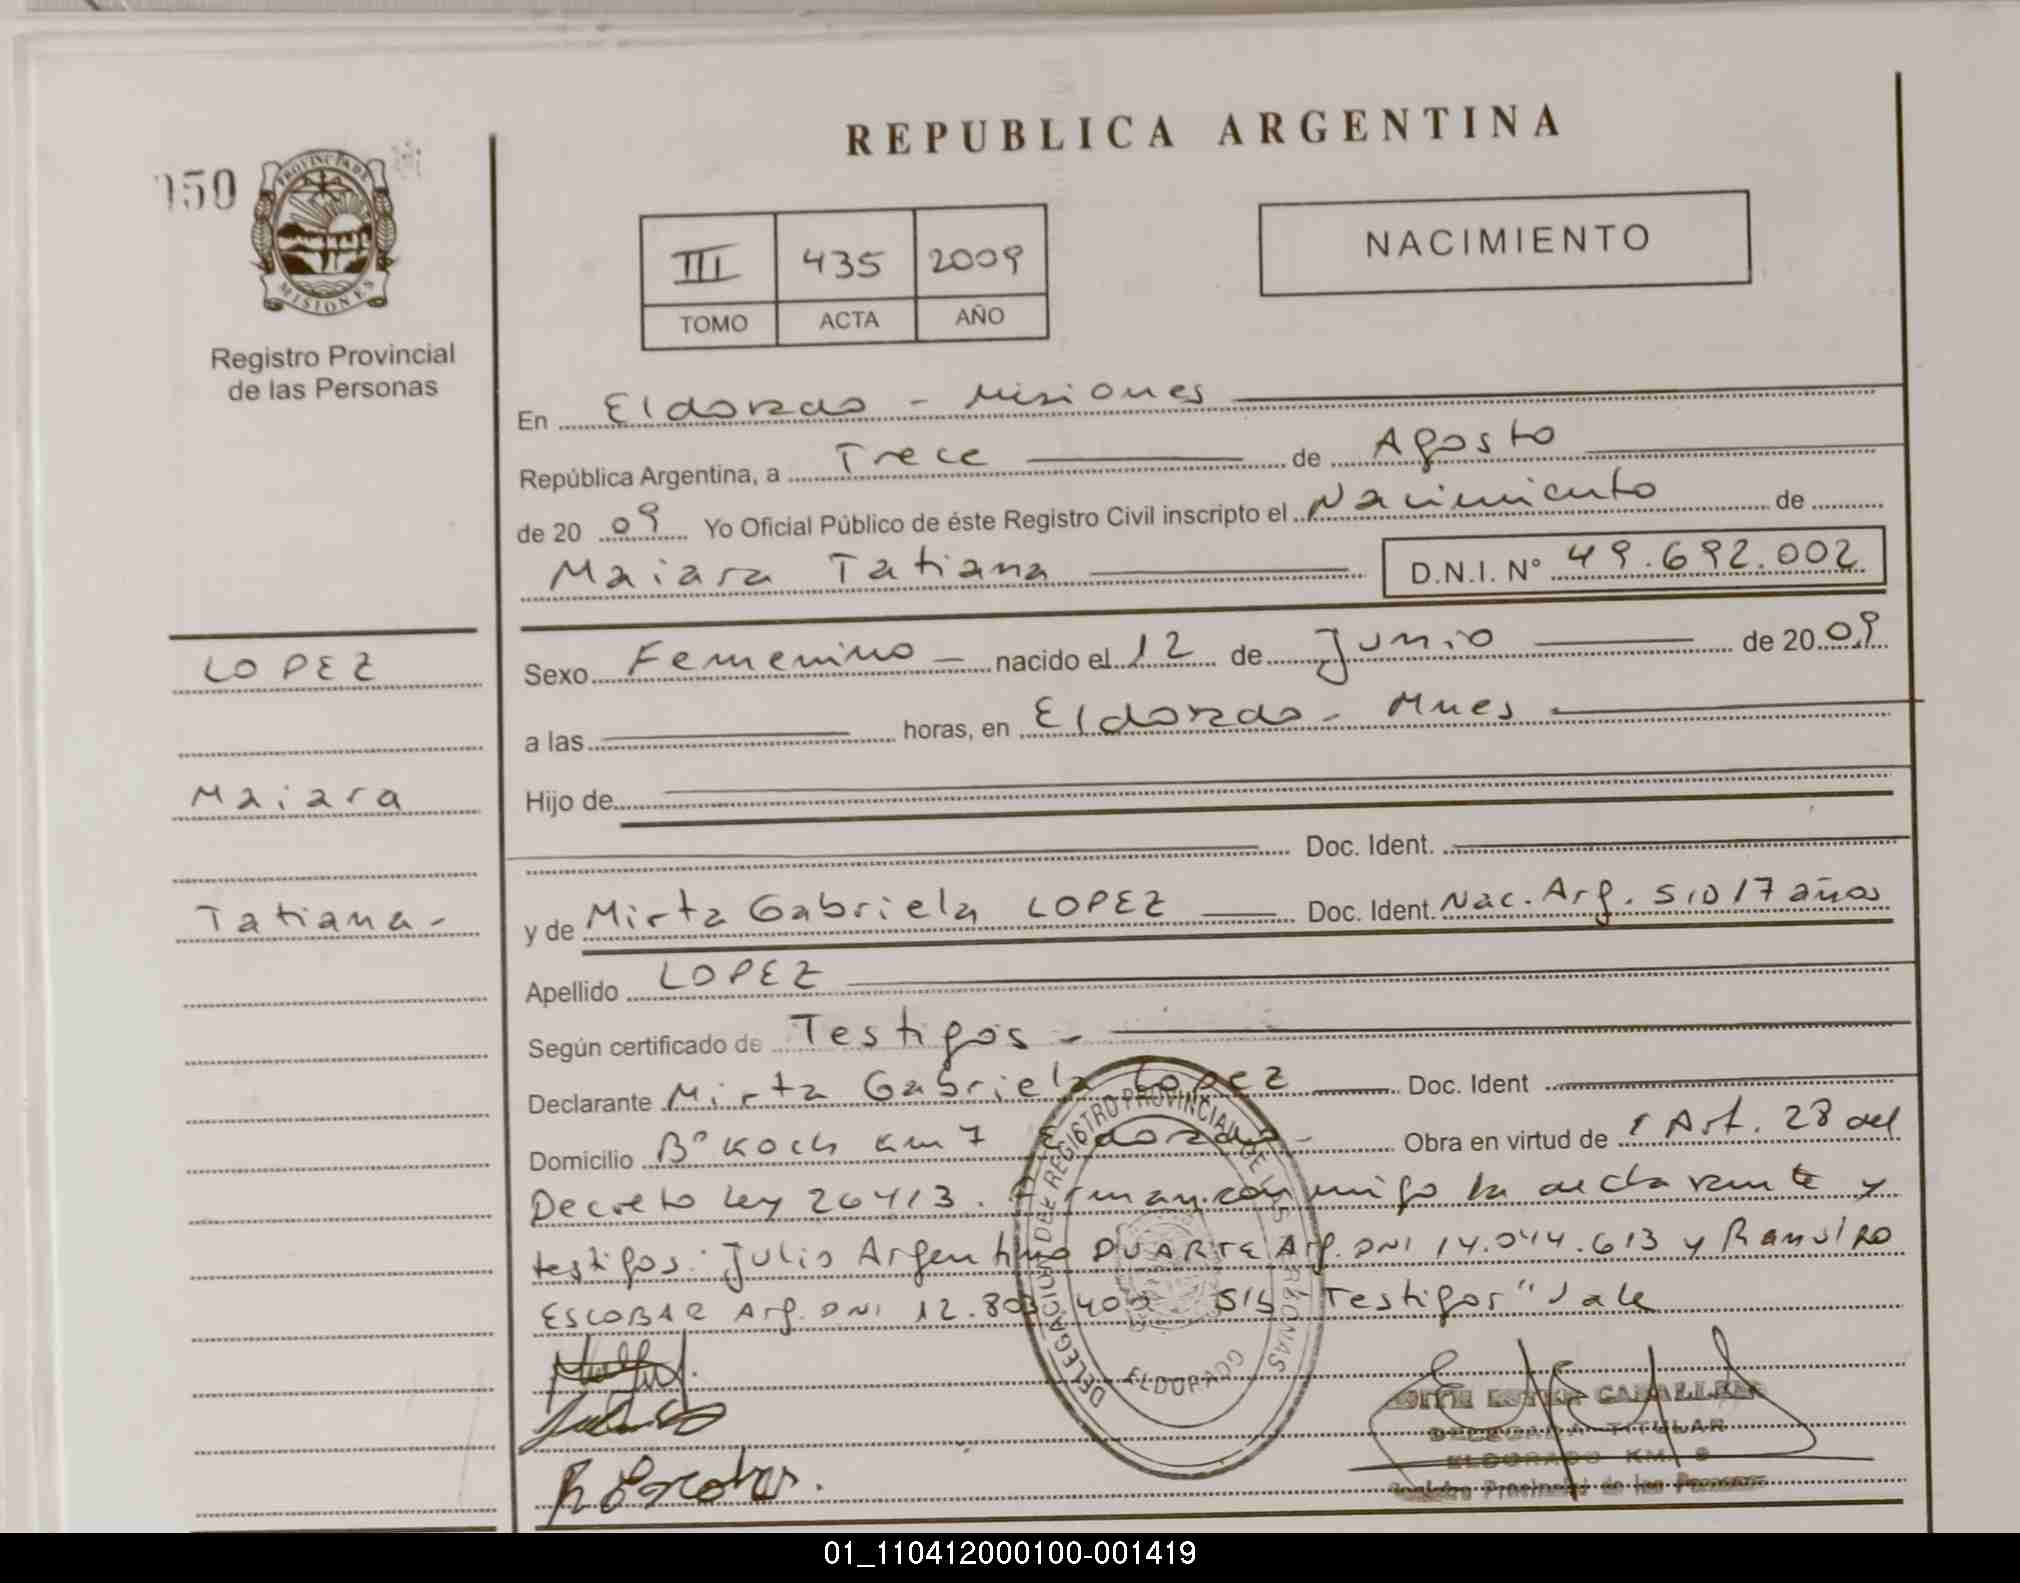 REPUBLICA ARGENTINA
150
PROVINCIA DE
MISIONES
Registro Provincial
de las Personas
III 435 2009
TOMO ACTA AÑO
NACIMIENTO
En Eldorado - Misiones
República Argentina, a Trece de Agosto
de 20 09 Yo Oficial Público de éste Registro Civil inscripto el Nacimiento de
Maiara Tatiana D.N.I. N° 49.692.002
LOPEZ
Maiara
Tatiana -
Sexo Femenino - nacido el 12 de Junio de 20 09
a las horas, en Eldorado - Mnes
Hijo de
Doc. Ident.
y de Mirta Gabriela LOPEZ Doc. Ident. Nac. Arg. S/D 17 años
Apellido LOPEZ
Según certificado de Testigos -
Declarante Mirta Gabriela Lopez Doc. Ident
Domicilio B° KOCH Km 7 Eldorado - Obra en virtud de Art. 28 del
Decreto Ley 26413. Firman conmigo la declarante y
testigos: Julio Argentino DUARTE Arg. DNI 14.044.613 y Ramiro
ESCOBAR Arg. DNI 12.803.400 S/b "Testigos" Vale
DELEGACION DE REGISTRO PROVINCIAL DE LAS PERSONAS
ELDORADO
R Escobar.
DELEGADA TITULAR
ELDORADO KM. 9
Registro Provincial de las Personas
01_110412000100-001419